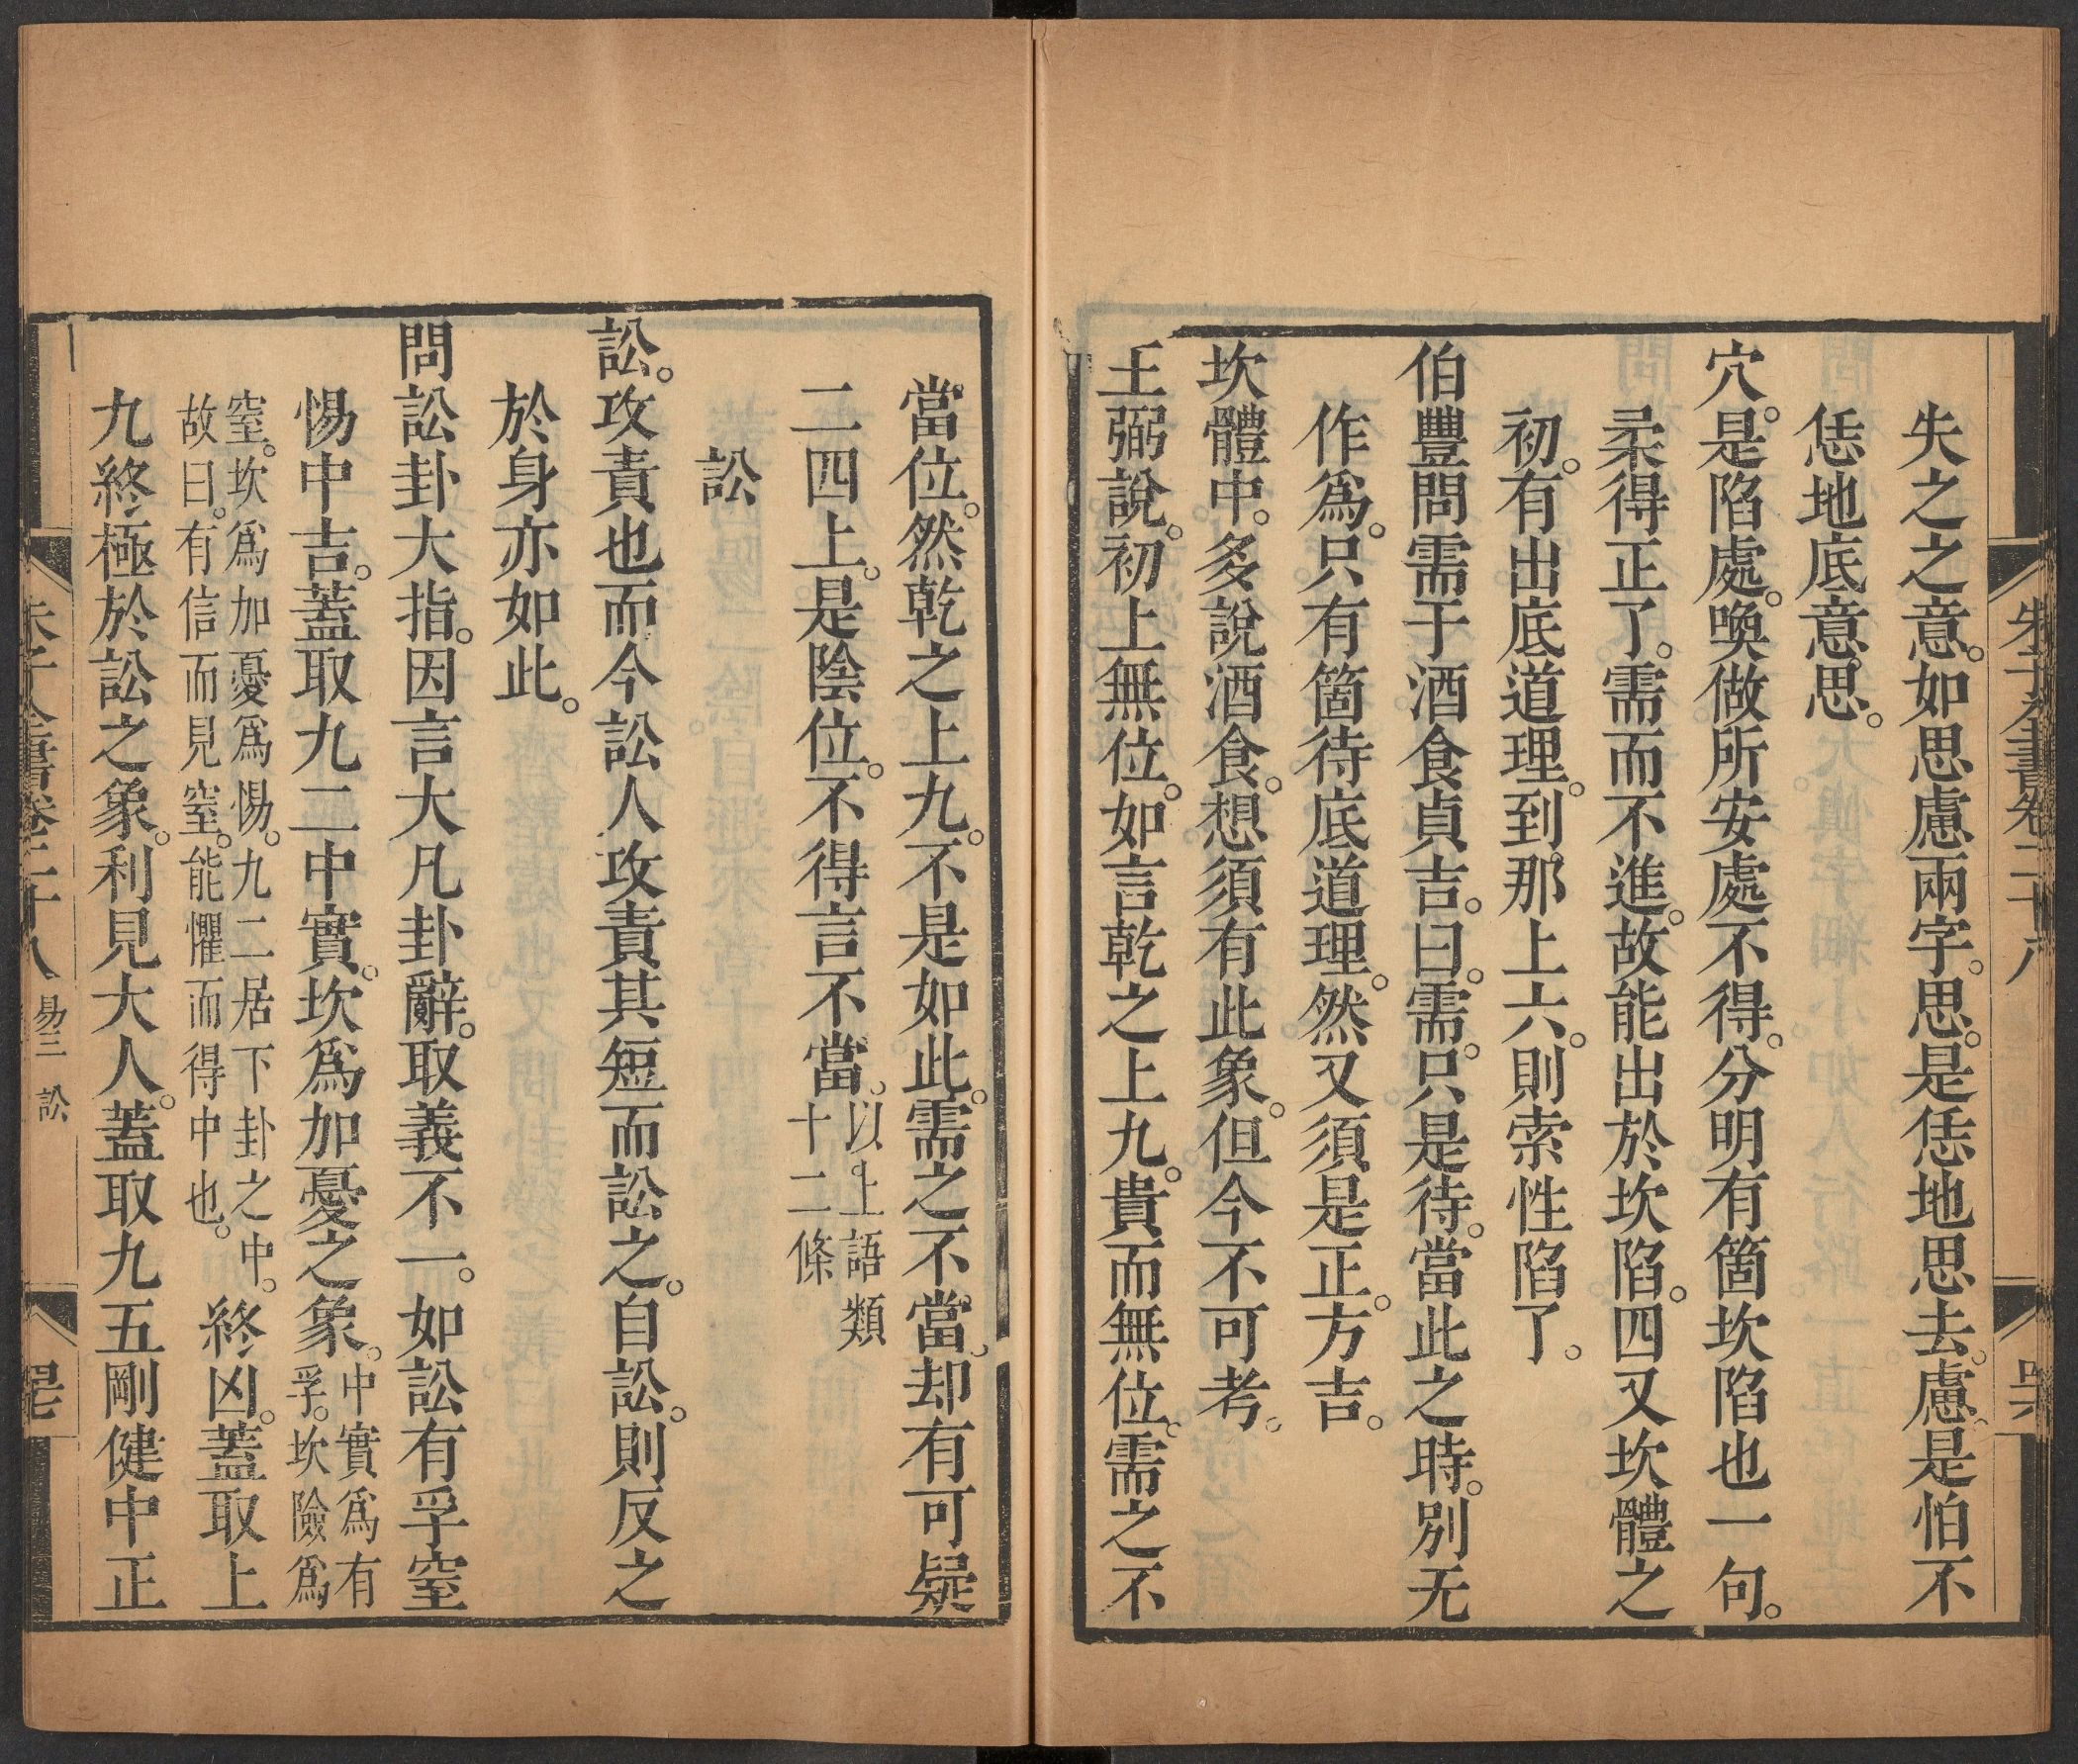 失之之意。如思慮兩字。思。是恁地思去。慮。是怕不
恁地底意思。
穴。是陷處。喚做所安處不得。分明有箇坎陷也一句。
柔得正了。需而不進。故能出於坎陷。四又坎體之
初。有出底道理。到那上六。則索性陷了。
伯豐問需于酒食貞吉。曰。需。只是待。當此之時。別无
作爲。只有箇待底道理。然又須是正。方吉。
坎體中。多說酒食。想須有此象。但今不可考。
王弼說。初上無位。如言乾之上九。貴而無位。需之不
當位。然乾之上九。不是如此。需之不當。却有可疑
二四上。是陰位。不得言不當。以上語類
十二條
訟
訟。攻責也而今訟人攻責其短而訟之。自訟。則反之
於身亦如此。
問訟卦大指。因言大凡卦辭。取義不一。如訟有孚窒
惕中吉。蓋取九二中實。坎爲加憂之象。中實爲有
孚。坎險爲
窒。坎爲加憂爲惕。九二居下卦之中。
故曰。有信而見窒。能懼而得中也。終凶。蓋取上
九終極於訟之象。利見大人。蓋取九五剛健中正
朱子全書卷二十八
易三 訟